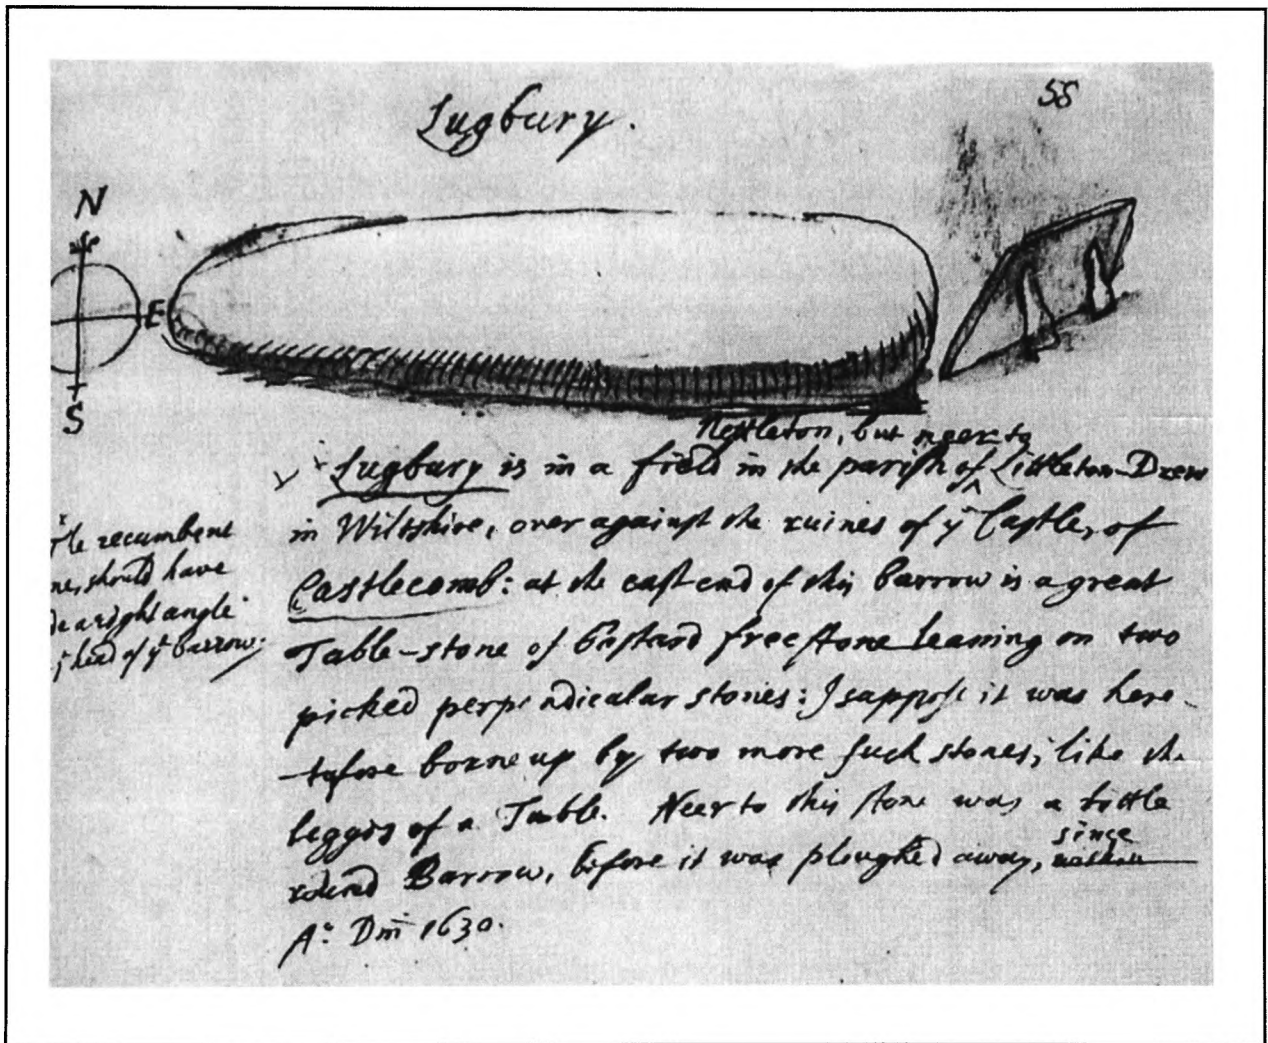 Lugbury.
58
N
E
S
Nettleton, but neer to
Lugbury is in a field in the parish of ^ Littleton-Drew
in Wiltshire, over against the ruines of yᵉ Castle, of
Castlecomb: at the east end of this barrow is a great
Table-stone of bastard freestone leaning on two
picked perpendicular stones: I suppose it was here-
-tofore borne up by two more such stones, like the
leggs of a Table. Neer to this stone was a little
round Barrow, before it was ploughed away, since
Aº: Dm̄ 1630.
recumbent
should have
a right angle
head of yᵉ barrow.